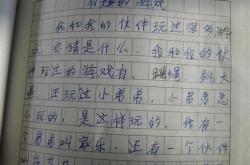 有趣的游戏
我和我的伙伴玩过很多游
戏,你猜是什么,我和我的伙
伴玩过的游戏有,跳绳,
还玩过小弟弟,小弟弟怎
玩的,是这样玩的,我有一
个弟弟叫家乐,还有一个伙伴